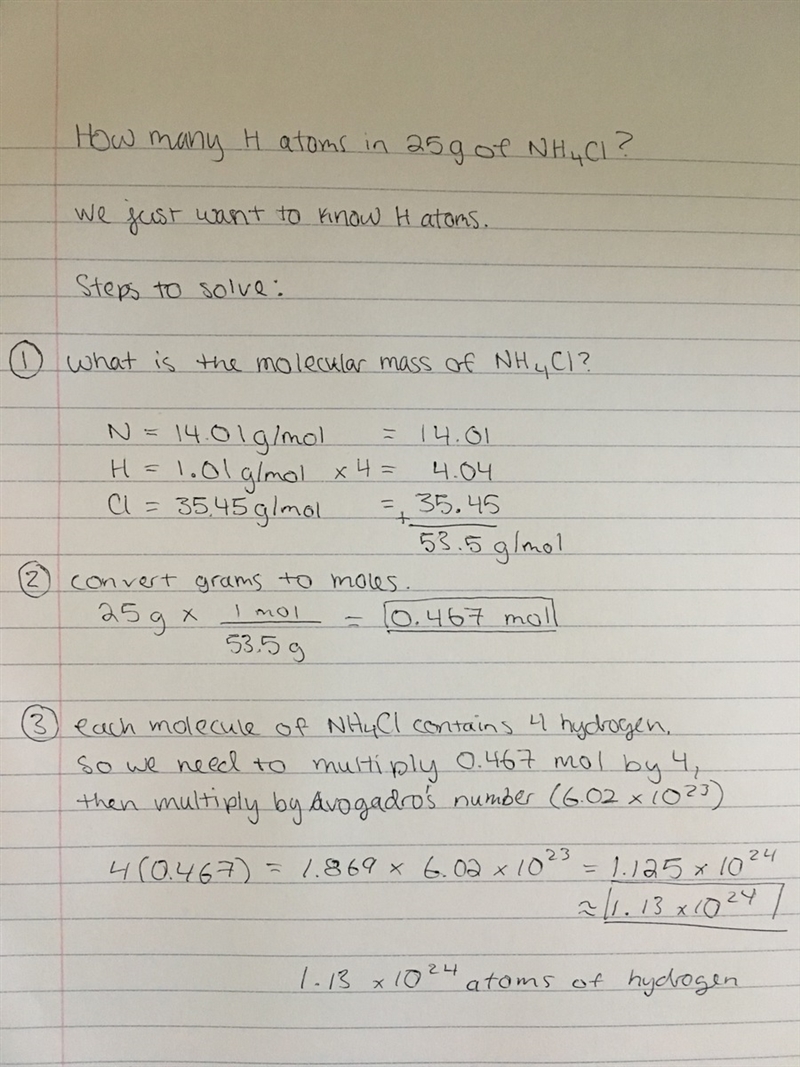 How many H atoms in 25g of NH₄Cl?
We just want to know H atoms.
Steps to solve:
① What is the molecular mass of NH₄Cl?
N = 14.01 g/mol = 14.01
H = 1.01 g/mol x 4 = 4.04
Cl = 35.45 g/mol = + 35.45
53.5 g/mol
② convert grams to moles.
25 g x 1 mol / 53.5 g = 0.467 mol
③ each molecule of NH₄Cl contains 4 hydrogen.
So we need to multiply 0.467 mol by 4,
then multiply by Avogadro's number (6.02 x 10²³)
4(0.467) = 1.869 x 6.02 x 10²³ = 1.125 x 10²⁴
≈ 1.13 x 10²⁴
1.13 x 10²⁴ atoms of hydrogen